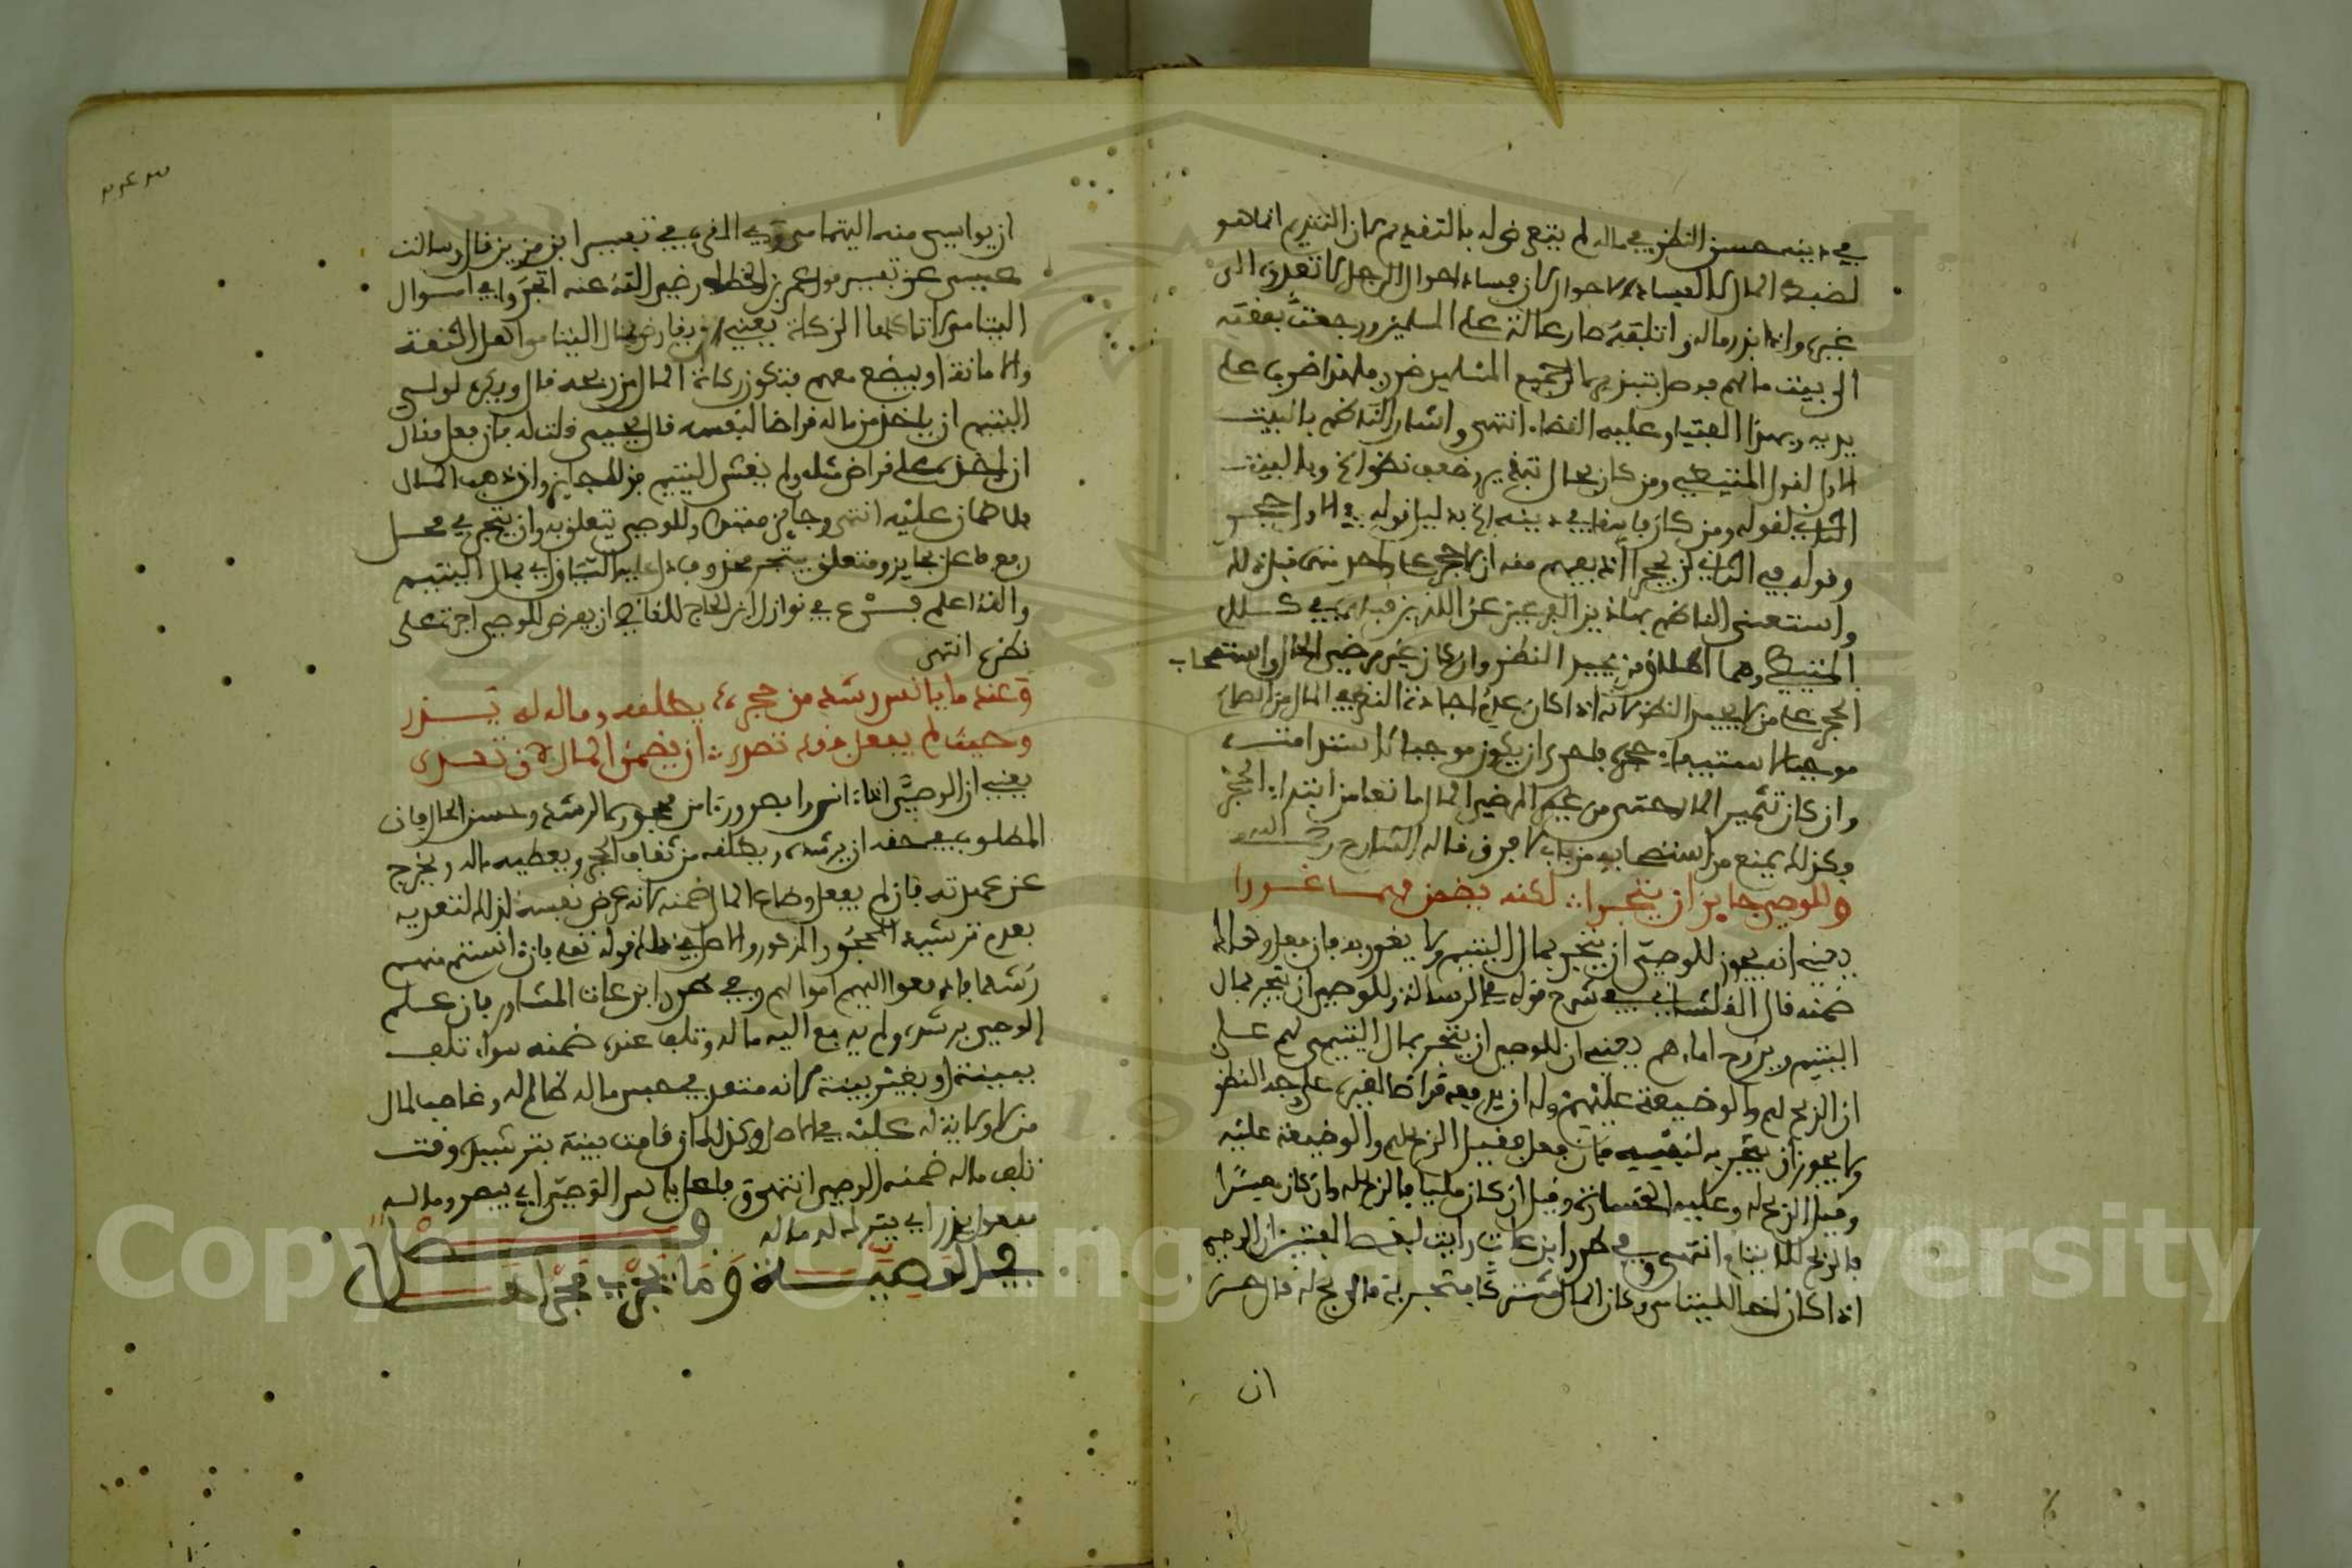 في دينه حسن النظر في ماله لم يتعرض له بالتقديم لان التقديم انما هو
لضبط المال لا لفساد الاحوال لان فساد احوال الرجل لا تعدى الى
غيره واذا بذر ماله واتلفه صار عالة على المسلمين ورجعت نفقته
الى بيت مالهم فدخل بتبذيره لجميع المسلمين ضرر فلهذا ضرب على
يديه وبهذا الفتيا وعليه القضاء انتهى واشار الناظم بالبيت
الاول لقول المتيطي ومن كان بحال تبذير وضعف نظر الخ وبالبيت
الثاني لقوله ومن كان فاسقا في دينه الخ بدليل قوله في الاول حجر
وقوله في الثاني لن يحجرا اذ يفهم منه ان الحجر على واحد منهما قبل ذلك
واستغنى الناظم بهاذين الفرعين عن اللذين قبلهما في كلام
المتيطي وهما اطلاق من يجيد النظر وان كان غير مرضي الحال واستصحاب
الحجر على من لا يجيد النظر لانه اذا كان عدم اجادة النظر في المال من الصالح
موجبا لابتداء حجره فاحرى ان يكون موجبا لاستدامته
وان كان تثمير المال حتى من غير المرضي الحال مانعا من ابتداء الحجر
وكذلك يمنع من استصحابه من باب لا فرق قاله الشارح رحمه الله
وللوصي جايز ان يتجرا لكنه يضمن مهما غررا
يعني انه يجوز للوصي ان يتجر بمال اليتيم ولا يغرر به فان فعل وهلك
ضمنه قال القلشاني في شرح قوله في الرسالة وللوصي ان يتجر بمال
اليتيم ويزوج اماءهم يعني ان للوصي ان يتجر بمال اليتيمى لهم على
ان الربح لهم والوضيعة عليهم وله ان يدفعه قراضا لغيره على وجه النظر
ولا يجوز ان يتجر به لنفسه فان فعل فقيل الربح لهم والوضيعة عليه
وقيل الربح له وعليه الخسارة وقيل ان كان مليا فالربح له وان كان معسرا
فالربح للايتام انتهى وفي طرر ابن عات رايت لبعض المفتين ان الوصي
اذا كان اخا لليتامى وكان المال مشتركا فتجر به فالربح له قال حسن
ان
ان يواسي منه اليتامى وفي تفسير ابن مزين قال وسالت
عيسى عن تفسير قول عمر بن الخطاب رضي الله عنه اتجروا في اموال
اليتامى لا تاكلها الزكاة يعني او يقارض بمال اليتامى اهل الثقة
والامانة او يبضع معهم فتكون زكاة المال من ربحه قال ويكره لولي
اليتيم ان ياخذ من ماله قراضا لنفسه قال يحيى قلت له فان فعل فقال
ان اخذ على قراض مثله ولم يغش اليتيم فذلك جايز وان ذهب المال
فلا ضمان عليه انتهى وجايز مبتدا وللوصي يتعلق به وان يتجر في محل
رفع فاعل بجايز ومتعلق يتجر محذوف دل عليه السياق اي بمال اليتيم
والله اعلم فرع في نوازل ابن الحاج للقاضي ان يفرض للوصي اجرة على
نظره انتهى
وعندما يانس رشد من حجر يطلقه وماله له يذر
وحيث لم يفعل فقد تصدى ان يضمن المال لان تعدى
يعني ان الوصي اذا انس وابصر ورءا من محجوره الرشد وحسن الحال فان
المطلوب في حقه ان يرشده ويطلقه من ثقاف الحجر ويعطيه ماله ويخرج
عن عهدته فان لم يفعل وضاع المال ضمنه لانه عرض نفسه لذلك لتعديه
بعدم ترشيد المحجور المذكور والاصل في ذلك قوله تعلى فان ءانستم منهم
رشدا فادفعوا اليهم اموالهم وفي طرر ابن عات المشاور فان علم
الوصي برشده ولم يدفع اليه ماله وتلف عنده ضمنه سواء تلف
ببينة او بغير بينة لانه متعد في حبس ماله ظالم له وغاصب لمال
من لا ولاية له عليه في الاصل وكذلك ان قامت بينة بترشيده وقت
تلف ماله ضمنه الوصي انتهى وفاعل يانس الوصي اي يبصر وماله
مفعول يذر اي يترك له ماله فصل
في الوصية وما يجري مجراها